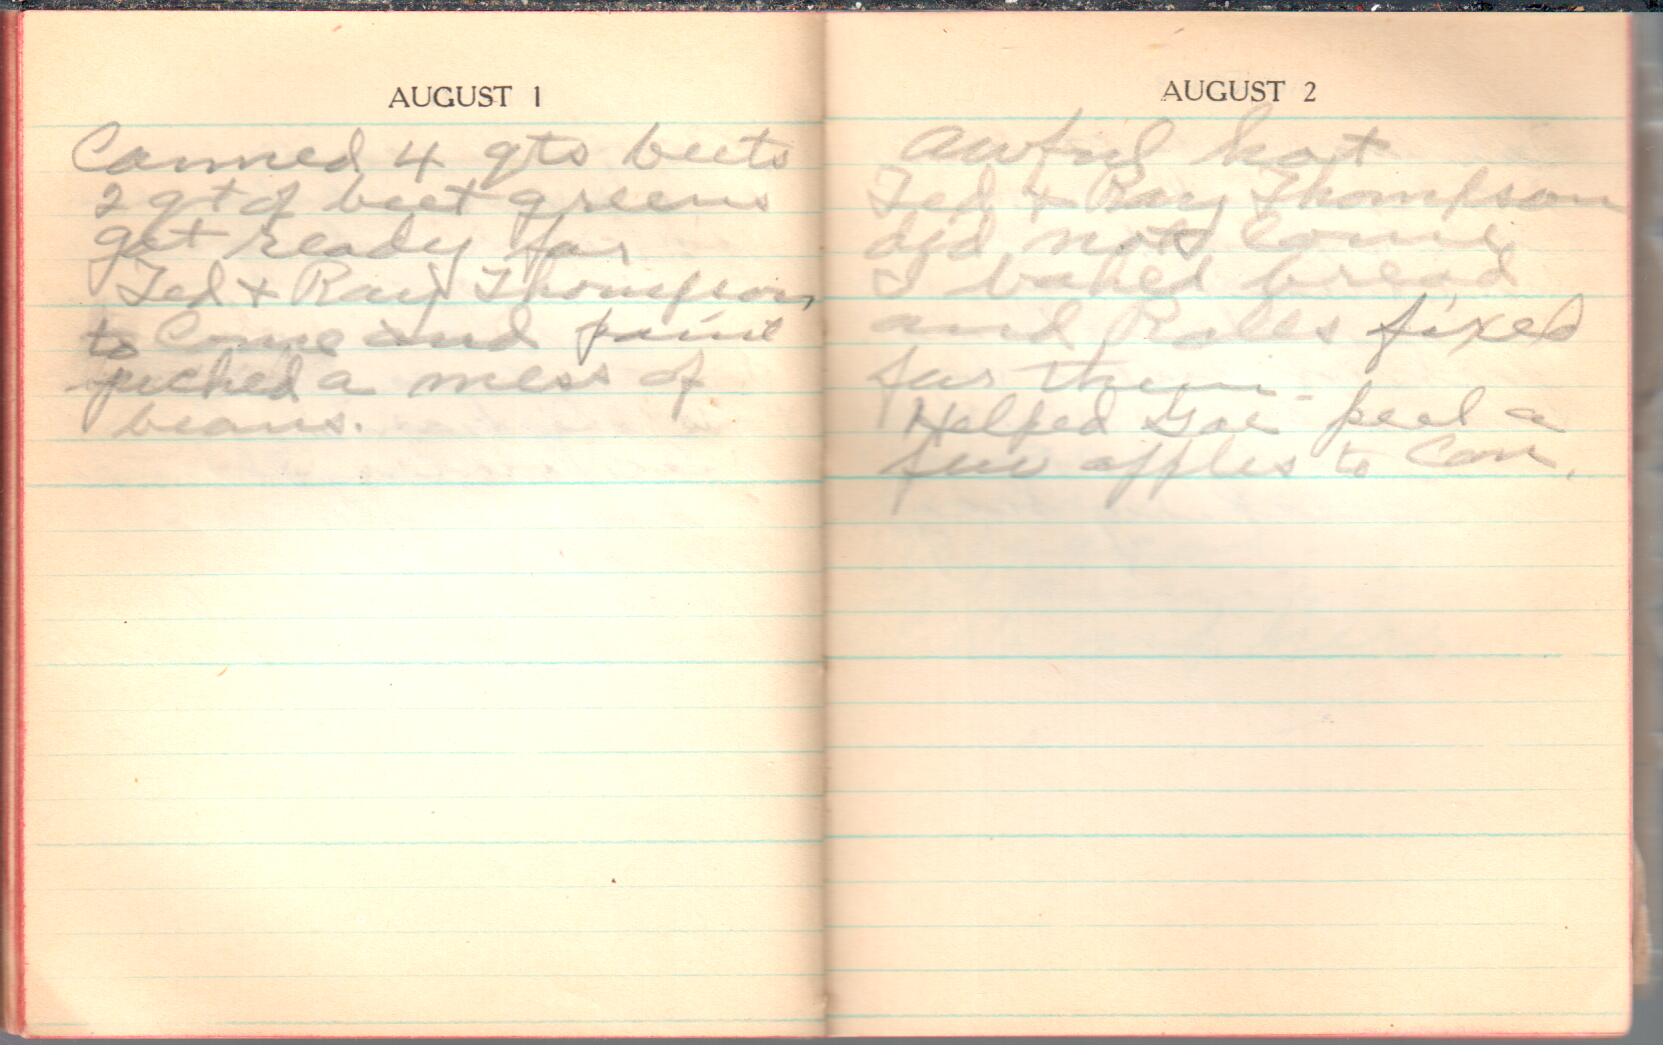 AUGUST 1
Canned 4 qts beets
2 qt of beet greens
get ready for
Ted & Ray Thompson,
to Come and paint
picked a mess of
beans.
AUGUST 2
Awful hot
Ted & Ray Thompson
did not Come,
I baked bread
and Rolls fixed
for them -
Helped peel a
few apples to Can.